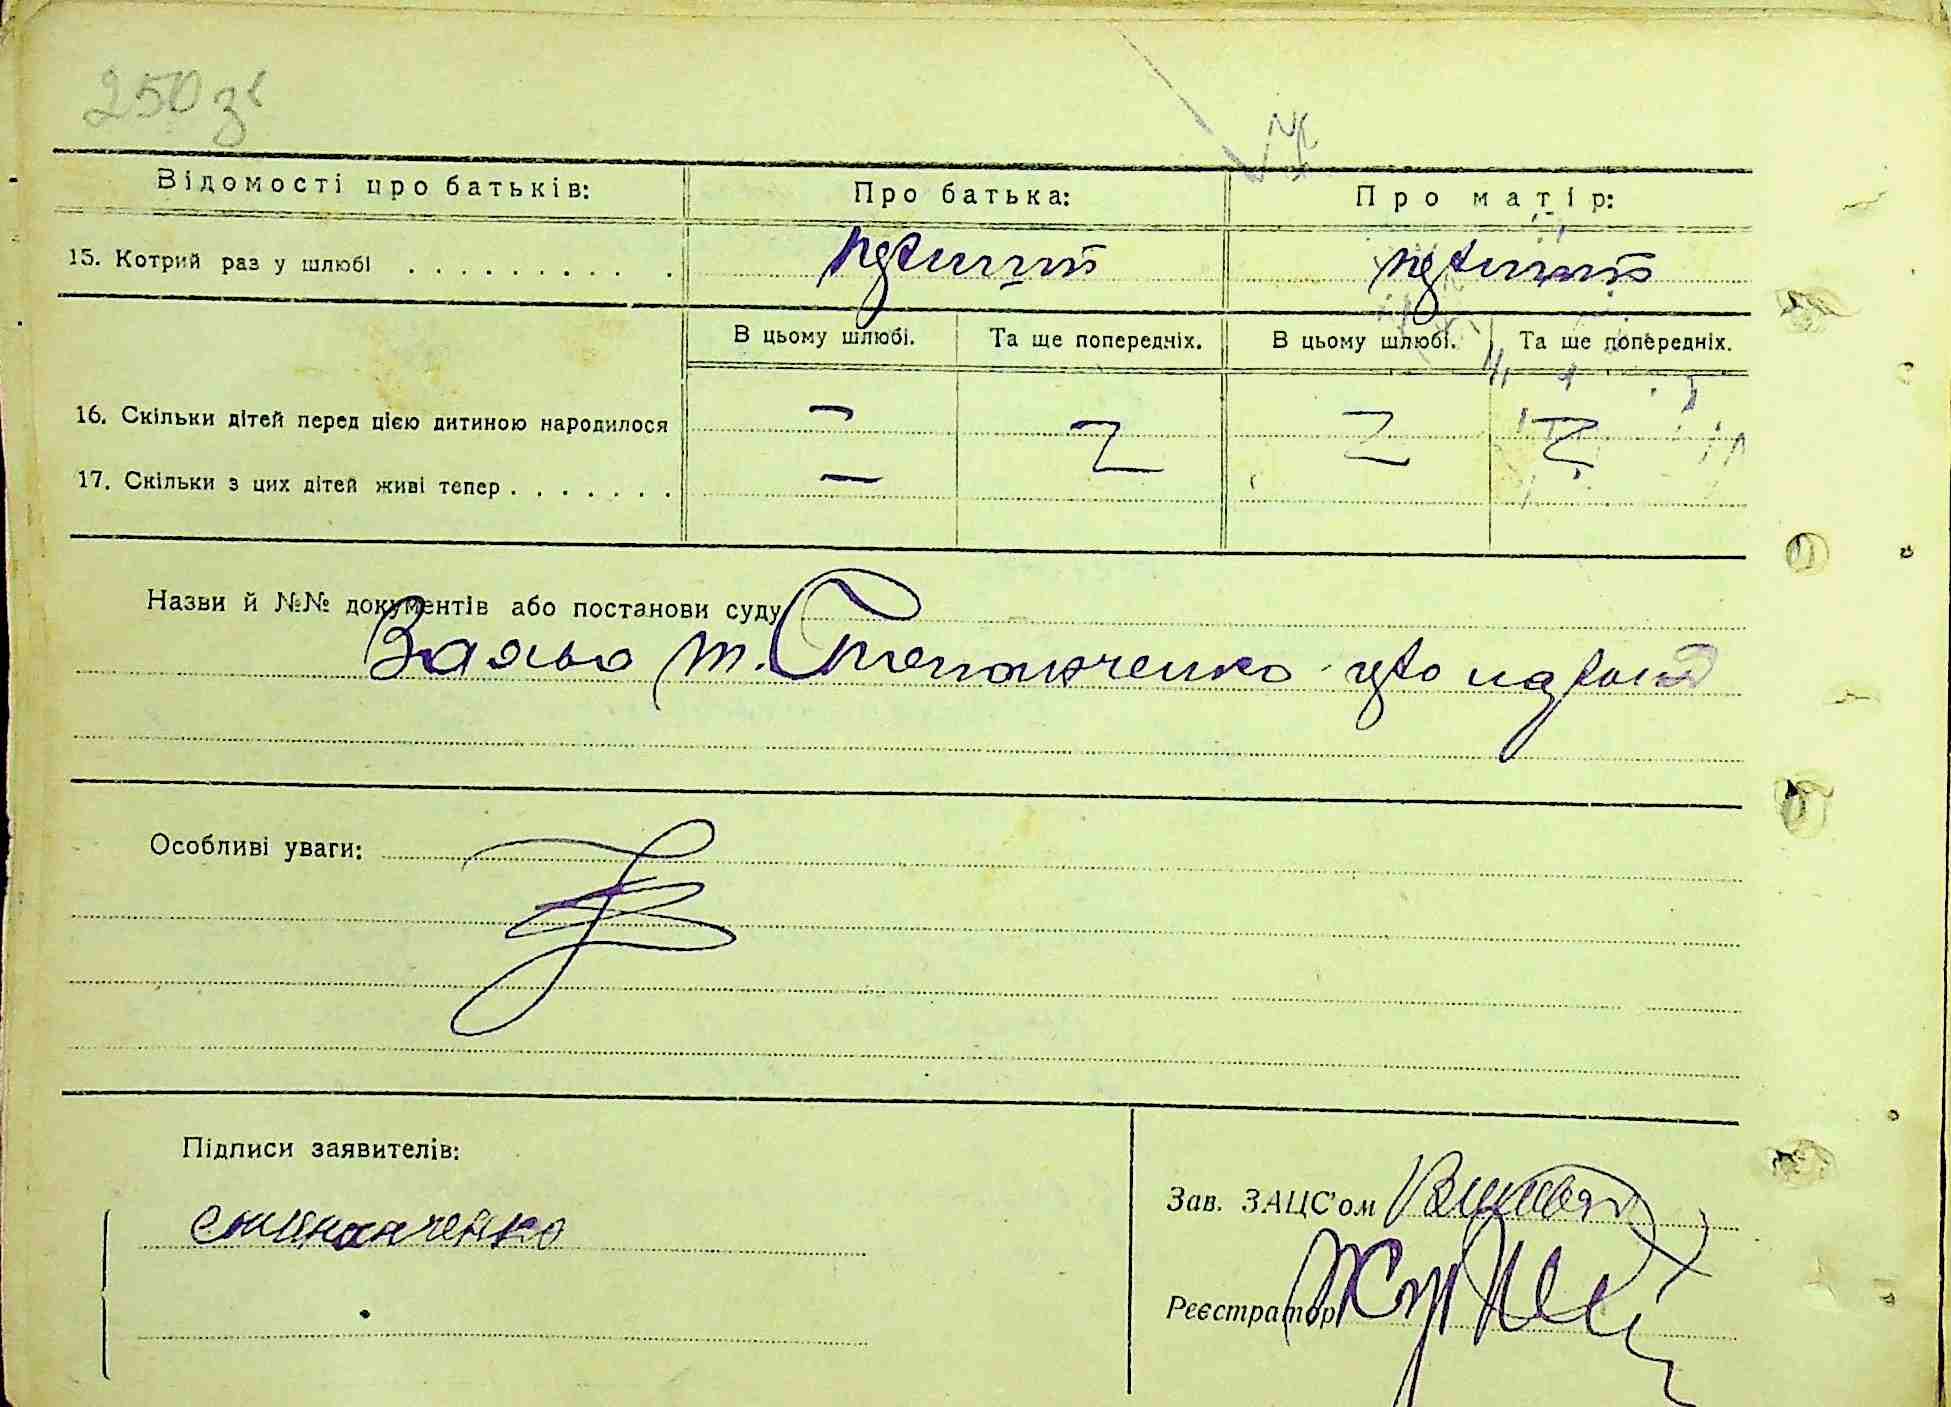 250 зв
Відомості про батьків: Про батька: Про матір:
15. Котрий раз у шлюбі . . . . . . . . . . перший перший
В цьому шлюбі. Та ще попередніх. В цьому шлюбі. Та ще попередніх.
16. Скільки дітей перед цією дитиною народилося
17. Скільки з цих дітей живі тепер . . . . . . .
Назви й №№ документів або постанови суду
Заява т. Степанченко про
Особливі уваги:
Підписи заявителів:
Зав. ЗАЦС'ом
Степанченко
Реєстратор